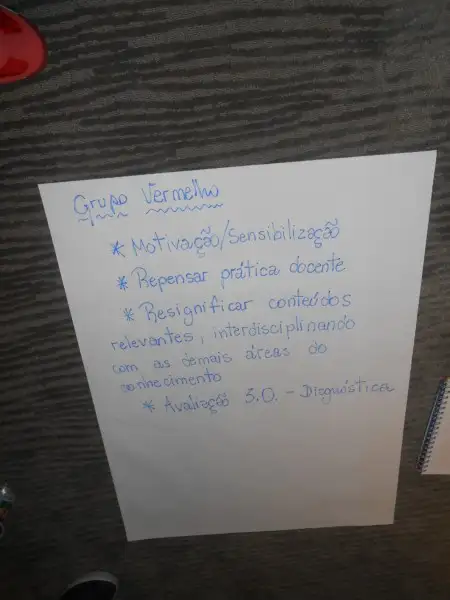 Grupo Vermelho
* Motivação/Sensibilização
* Repensar prática docente
* Resignificar conteúdos
relevantes, interdisciplinando
com as demais áreas do
conhecimento
* Avaliação 3.0. - Diagnóstica